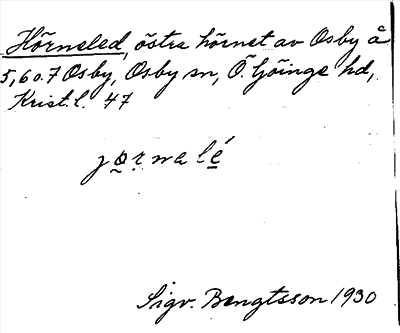 Hörneled, östra hörnet av Osby å
5,6 o.7 Osby, Osby sn, Ö. Göinge hd,
Krist.l. 47
jo̤ṛnalé̱
Sigv. Bengtsson 1930